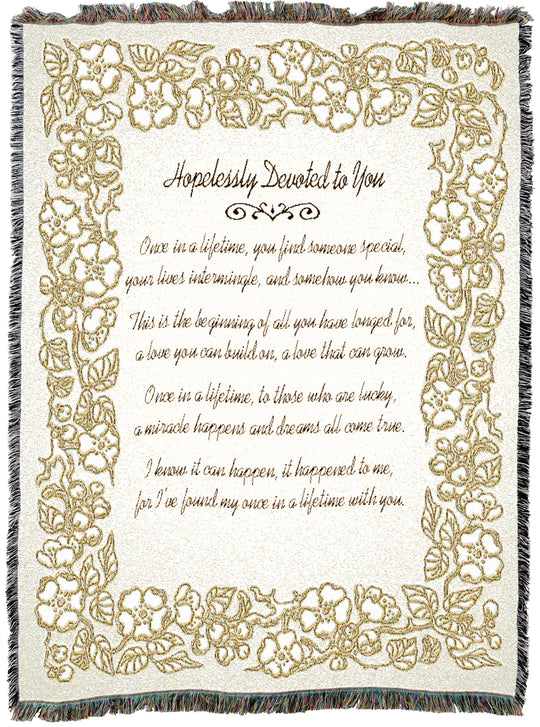 Hopelessly Devoted to You
Once in a lifetime, you find someone special,
your lives intermingle, and somehow you know...
This is the beginning of all you have longed for,
a love you can build on, a love that can grow.
Once in a lifetime, to those who are lucky,
a miracle happens and dreams all come true.
I know it can happen, it happened to me,
for I've found my once in a lifetime with you.